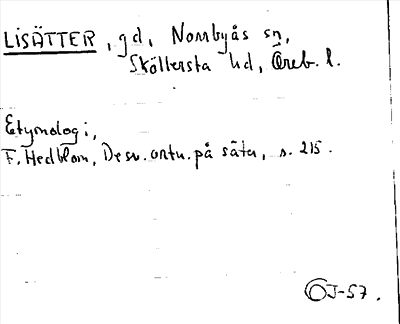 LISÄTTER, gd, Norrbyås sn,
Sköllersta hd, Öreb. l.
Etymologi,
F. Hedblom, De sv. ortn. på säter, s. 215.
OJ-57.